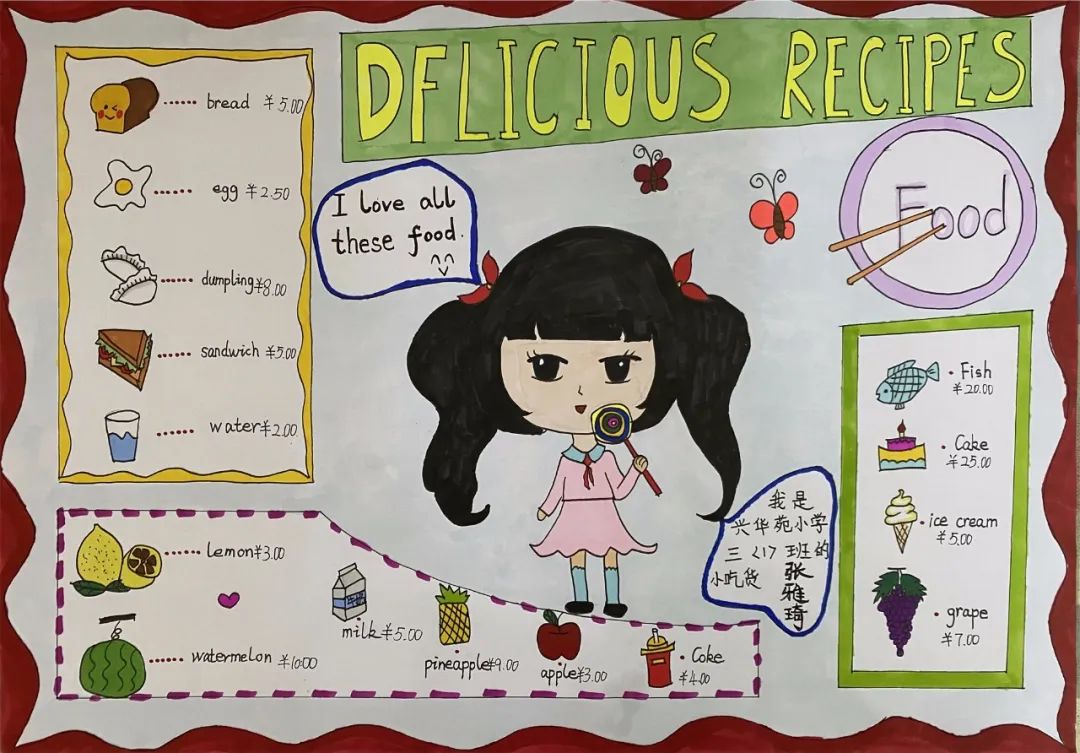 DFLICIOUS RECIPES
bread ¥5.00
egg ¥2.50
dumpling ¥8.00
sandwich ¥5.00
water ¥2.00
I love all
these food.
Food
Fish
¥20.00
Cake
¥25.00
ice cream
¥5.00
grape
¥7.00
lemon ¥3.00
watermelon ¥10.00
牛奶
milk ¥5.00
pineapple ¥9.00
apple ¥3.00
Coke
¥4.00
我是
兴华苑小学
三〈1〉班的
小吃货 张
雅
琦